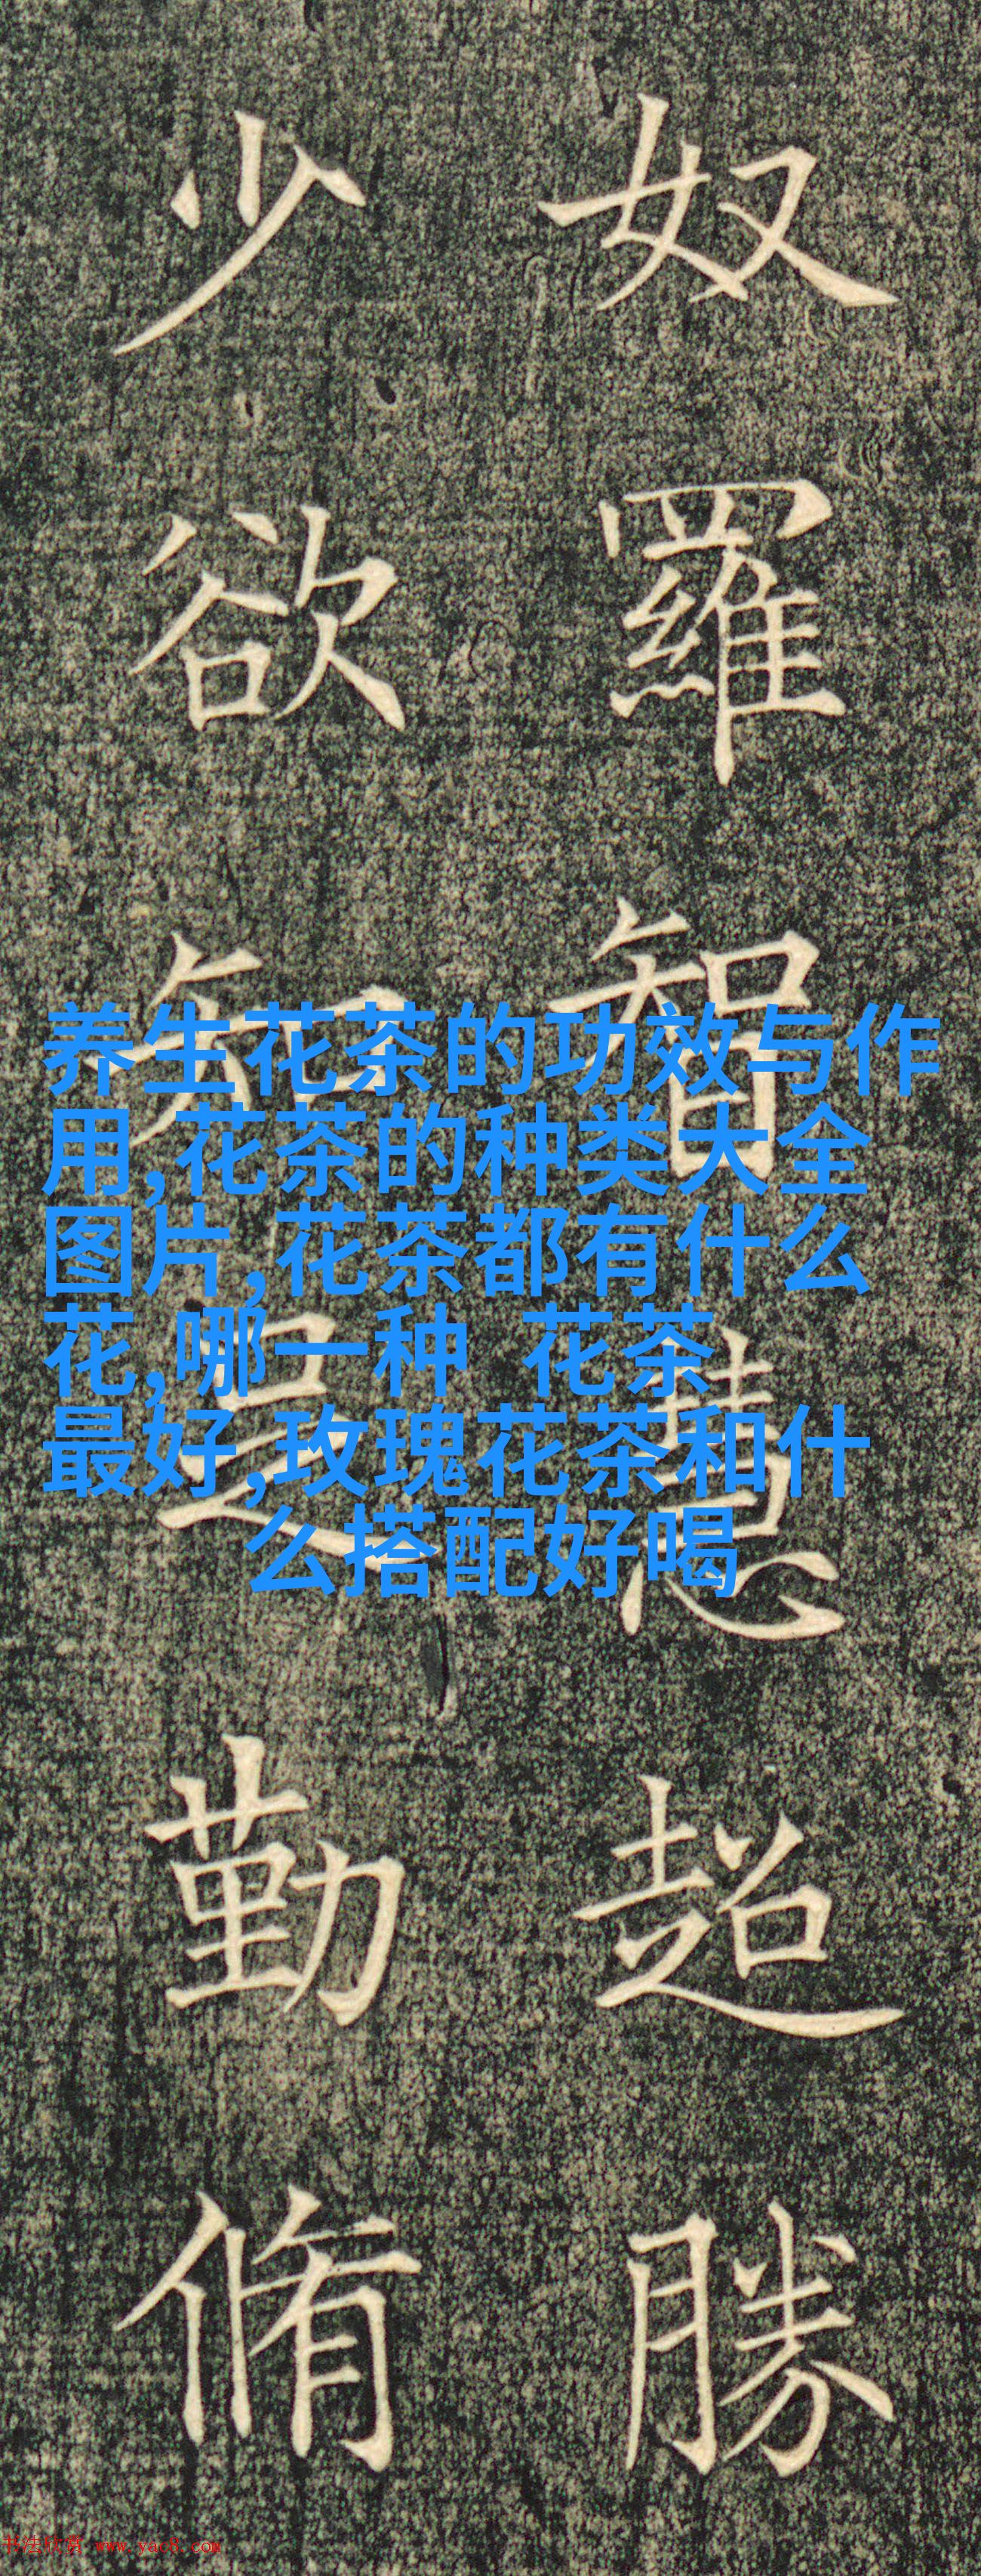 奴羅智慧超勝
少欲知足勤脩
养生花茶的功效与作
用,花茶的种类大全
图片,花茶都有什么
花,哪一种 花茶
最好,玫瑰花茶和什
么搭配好喝
书法欣赏 www.yac8.com